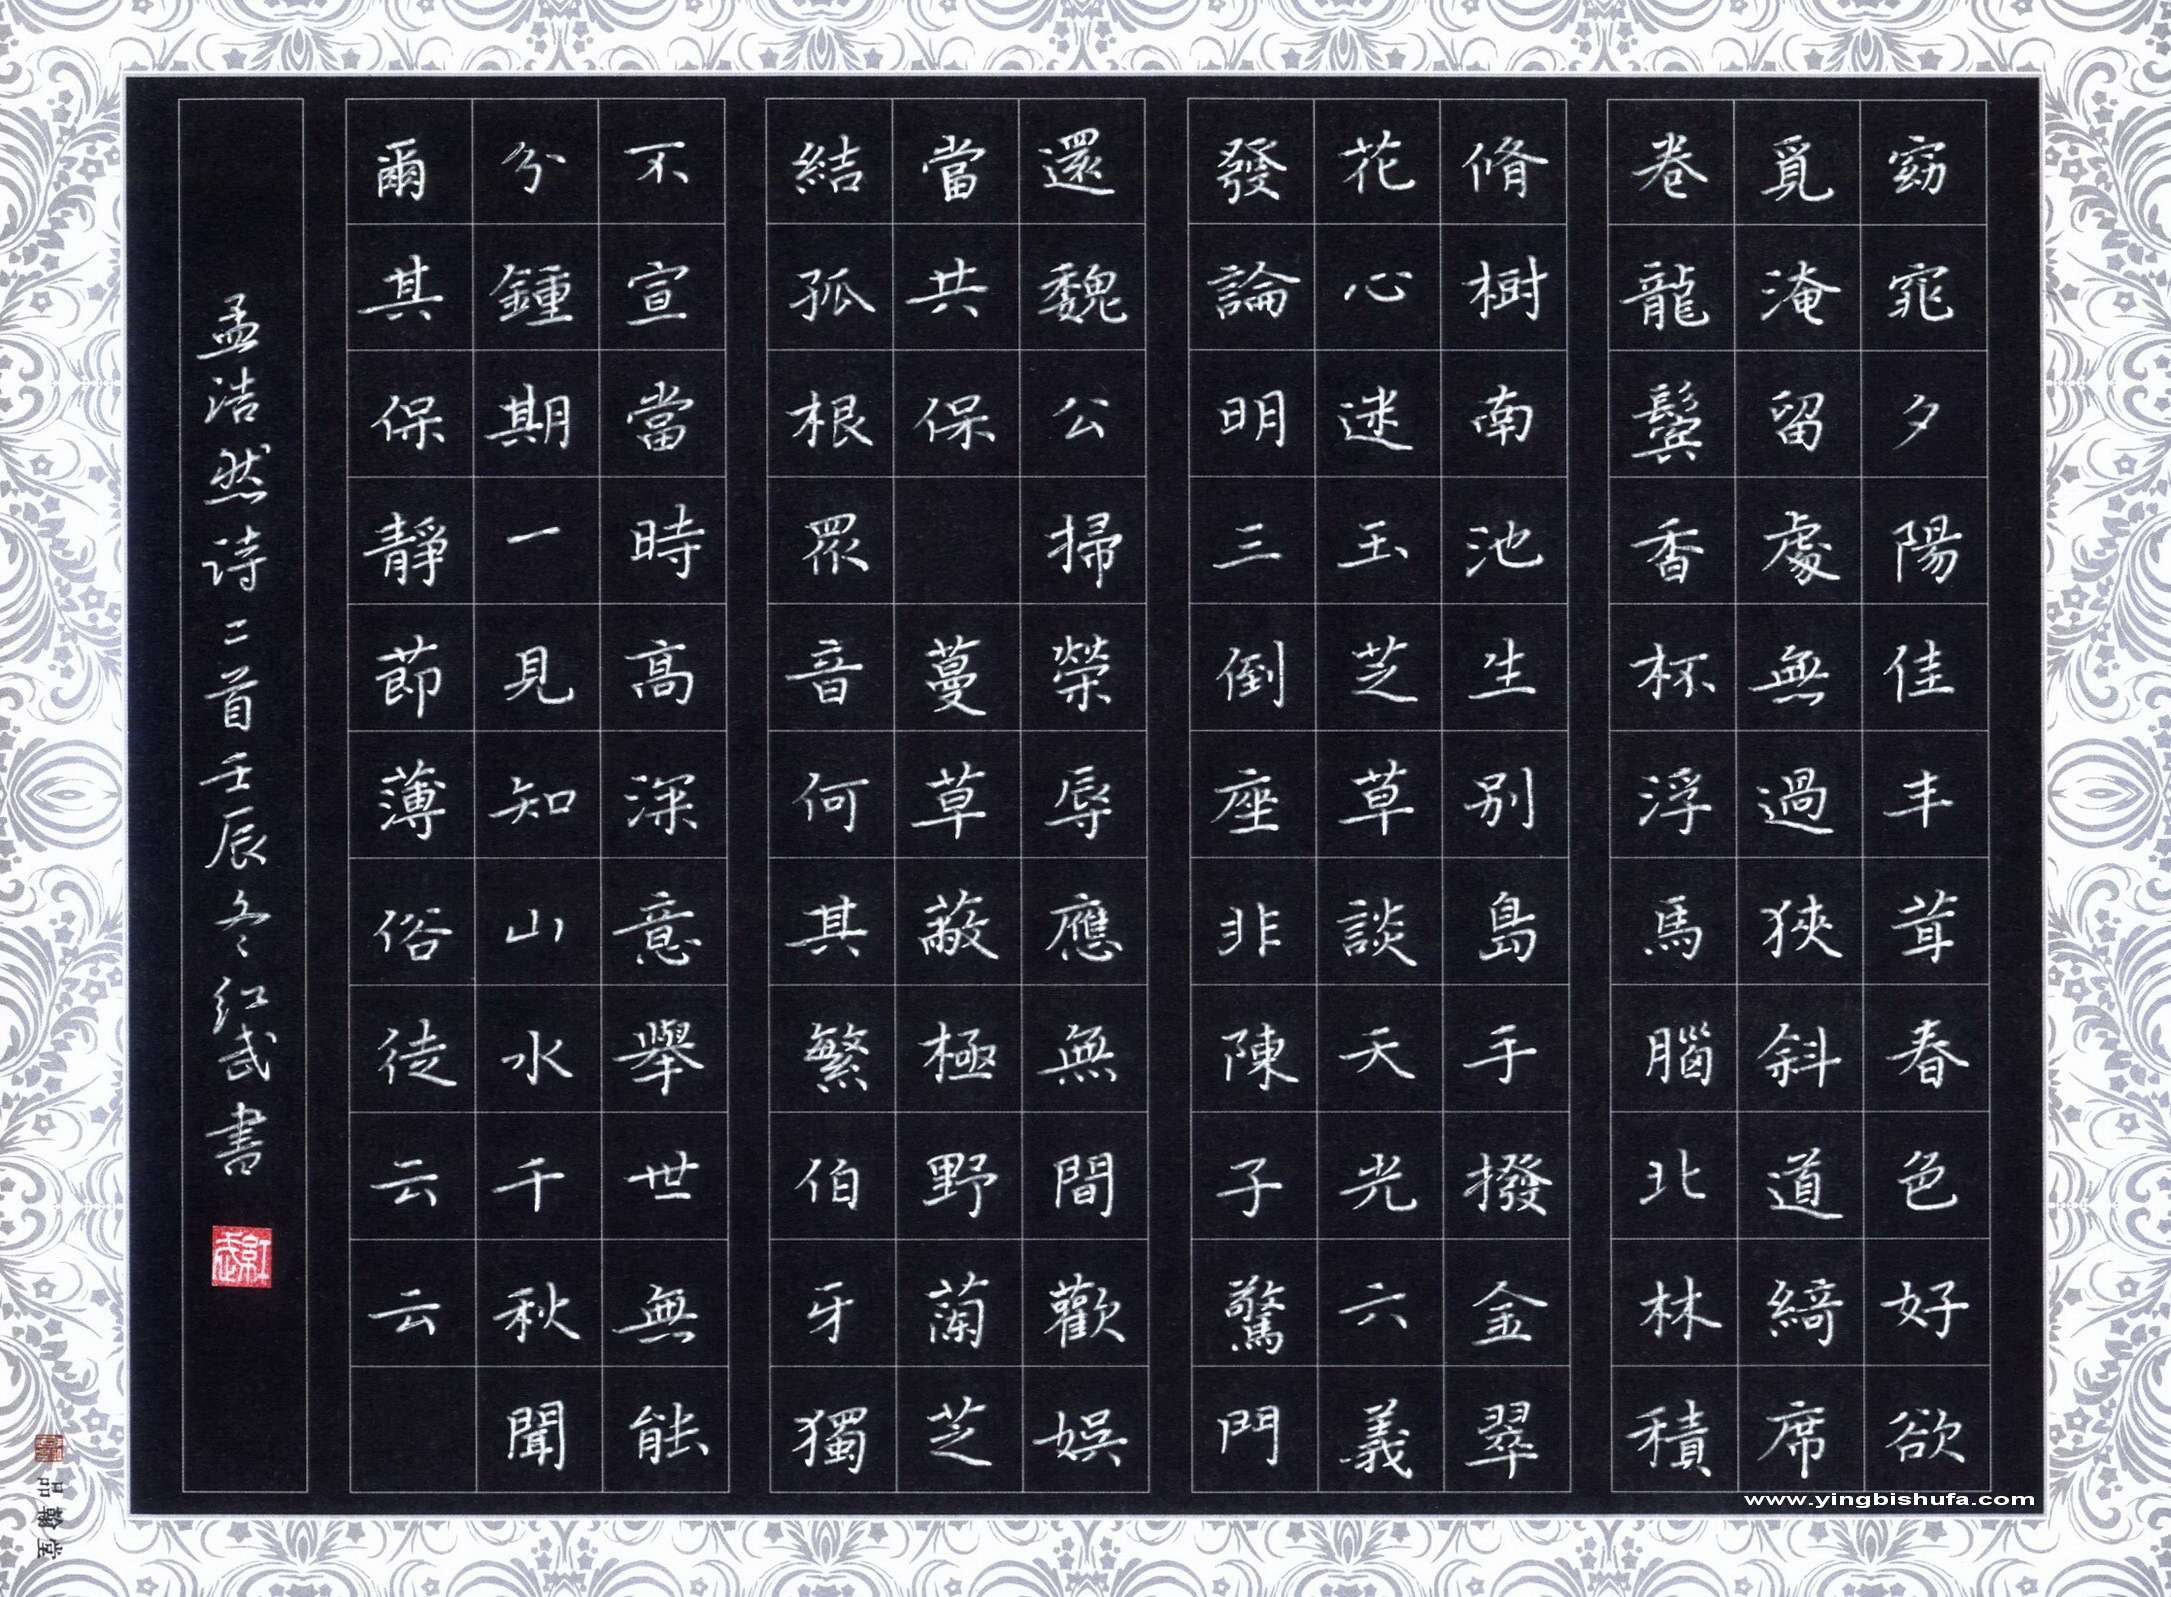 窈窕夕陽佳丰茸春色好欲
覓淹留處無過狹斜道綺席
卷龍鬚香杯浮馬腦北林積
脩樹南池生别島手撥金翠
花心迷玉芝草談天光六義
發論明三倒座非陳子驚門
還魏公掃榮辱應無間歡娛
當共保 蔓草蔽極野蘭芝
結孤根眾音何其繁伯牙獨
不宣當時高深意舉世無能
分鍾期一見知山水千秋聞
爾其保靜節薄俗徒云云
孟浩然诗二首壬辰冬红武書
紅武
品翰堂
www.yingbishufa.com